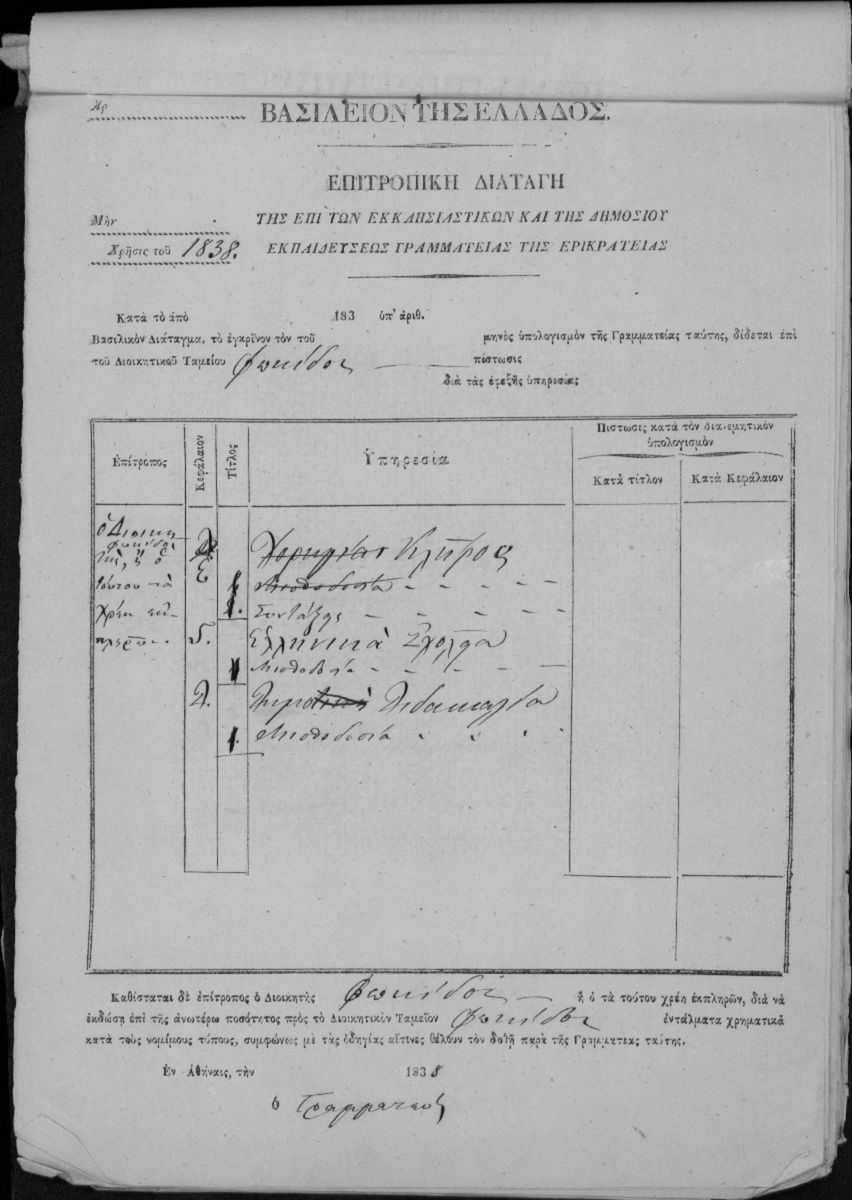 Ἀρ
ΒΑΣΙΛΕΙΟΝ ΤΗΣ ΕΛΛΑΔΟΣ.
ΕΠΙΤΡΟΠΙΚΗ ΔΙΑΤΑΓΗ
Μὴν
ΤΗΣ ΕΠΙ ΤΩΝ ΕΚΚΛΗΣΙΑΣΤΙΚΩΝ ΚΑΙ ΤΗΣ ΔΗΜΟΣΙΟΥ
Χρῆσις τοῦ 1838.
ΕΚΠΑΙΔΕΥΣΕΩΣ ΓΡΑΜΜΑΤΕΙΑΣ ΤΗΣ ΕΡΙΚΡΑΤΕΙΑΣ
Κατὰ τὸ ἀπὸ 183 ὑπ' ἀριθ.
Βασιλικὸν Διάταγμα, τὸ ἐγκρῖνον τὸν τοῦ μηνὸς ὑπολογισμὸν τῆς Γραμματείας ταύτης, δίδεται ἐπὶ
τοῦ Διοικητικοῦ Ταμείου Φωκίδος πίστωσις
διὰ τὰς ἐφεξῆς ὑπηρεσίας
Ἐπίτροπος
Κεφάλαιον
Τίτλος
Ὑπηρεσία
Πίστωσις κατὰ τὸν διανεμητικὸν
ὑπολογισμὸν
Κατὰ τίτλον
Κατὰ Κεφάλαιον
ὁ Διοικη
Φωκίδο
τὴς, ἢ ὁ
τούτου τὰ
χρέη ἐκ
πληρῶν.
Χορηγίαι Κλῆρος
Ε
Μισθοδοσία
Συντάξεις
5. Ἑλληνικὰ Σχολεῖα
1 Μισθοδοσία
Δημοτικὴ Διδασκαλία
1. Μισθοδοσία
Καθίσταται δὲ ἐπίτροπος ὁ Διοικητὴς Φωκίδος ἢ ὁ τὰ τούτου χρέη ἐκπληρῶν, διὰ νὰ
ἐκδώσῃ ἐπὶ τῆς ἀνωτέρω ποσότητος πρὸς τὸ Διοικητικὸν Ταμεῖον Φωκίδος ἐντάλματα χρηματικὰ
κατὰ τοὺς νομίμους τύπους, συμφώνως μὲ τὰς ὁδηγίας αἵτινες θέλουν τὸν δοθῆ παρὰ τῆς Γραμματεας ταύτης.
Ἐν Ἀθήναις, τὴν 1838
ὁ Γραμματεὺς